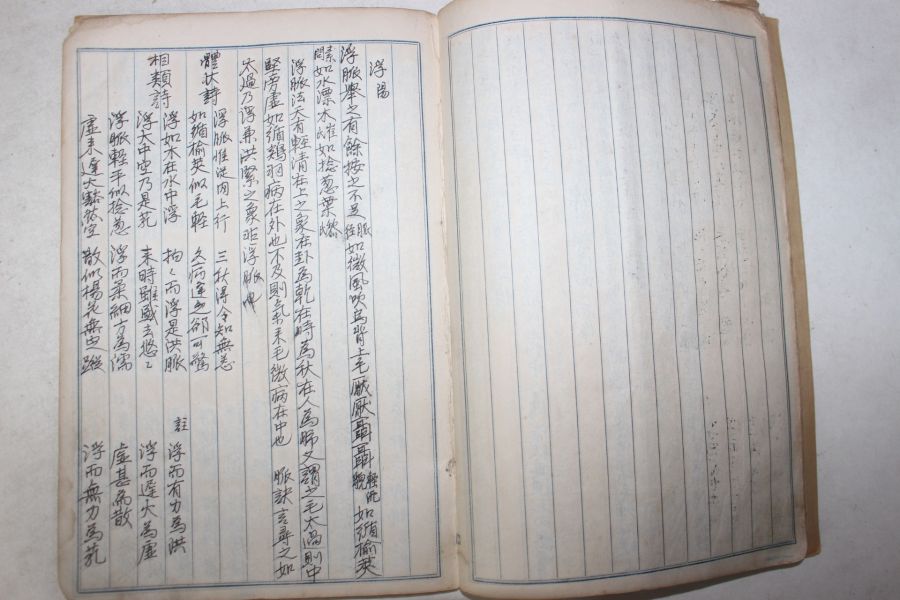 浮陽
浮脈舉之有餘按之不足脈經如微風吹鳥背上毛厭厭聶聶輕汎貌如循榆莢
素問如水漂木崔氏如捻葱葉黎氏
浮脈法天有輕清在上之象在卦為乾在時為秋在人為肺又謂之毛太過則中
堅旁虛如循鷄羽病在外也不及則氣來毛微病在中也 脈訣言尋之如
太過乃浮兼洪緊之象非浮脈也
體状詩 浮脈惟從肉上行 三秋得令知無恙
如循榆莢似毛輕 久病逢之却可驚
相類詩 浮如木在水中浮 拍々而浮是洪脈 註 浮而有力為洪
浮大中空乃是芤 來時雖盛去悠々 浮而遲大為虛
浮脈輕平似捻葱 浮而柔細方為濡 虛甚為散
虛來遲大豁然空 散似楊花無定蹤 浮而無力為芤